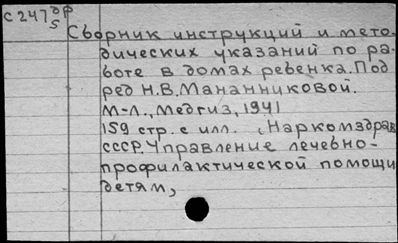 с 247 др
5
Сборник инструкций и мето-
дических указаний по ра-
боте в домах ребенка. Под
ред Н.В. Мананниковой.
М-Л., Медгиз, 1941
159 стр. с илл. (Наркомздрав
СССР. Управление лечебно-
профилактической помощи
детям,